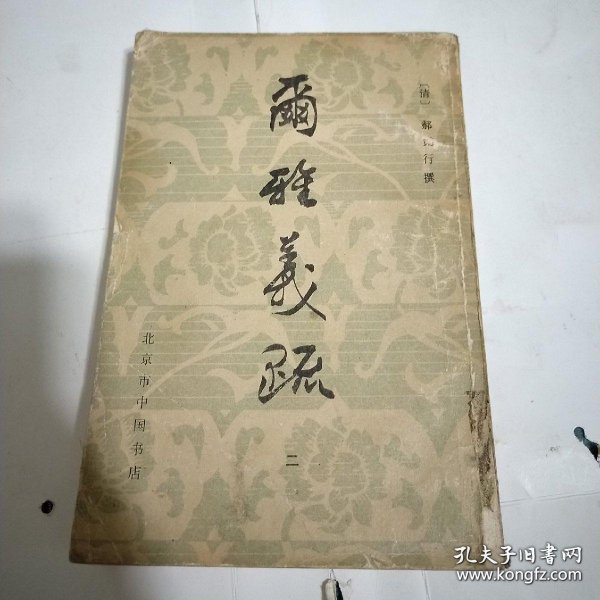 [清] 郝懿行 撰
爾雅義疏
二
北京市中国书店
孔夫子旧書网
www.kongfz.com